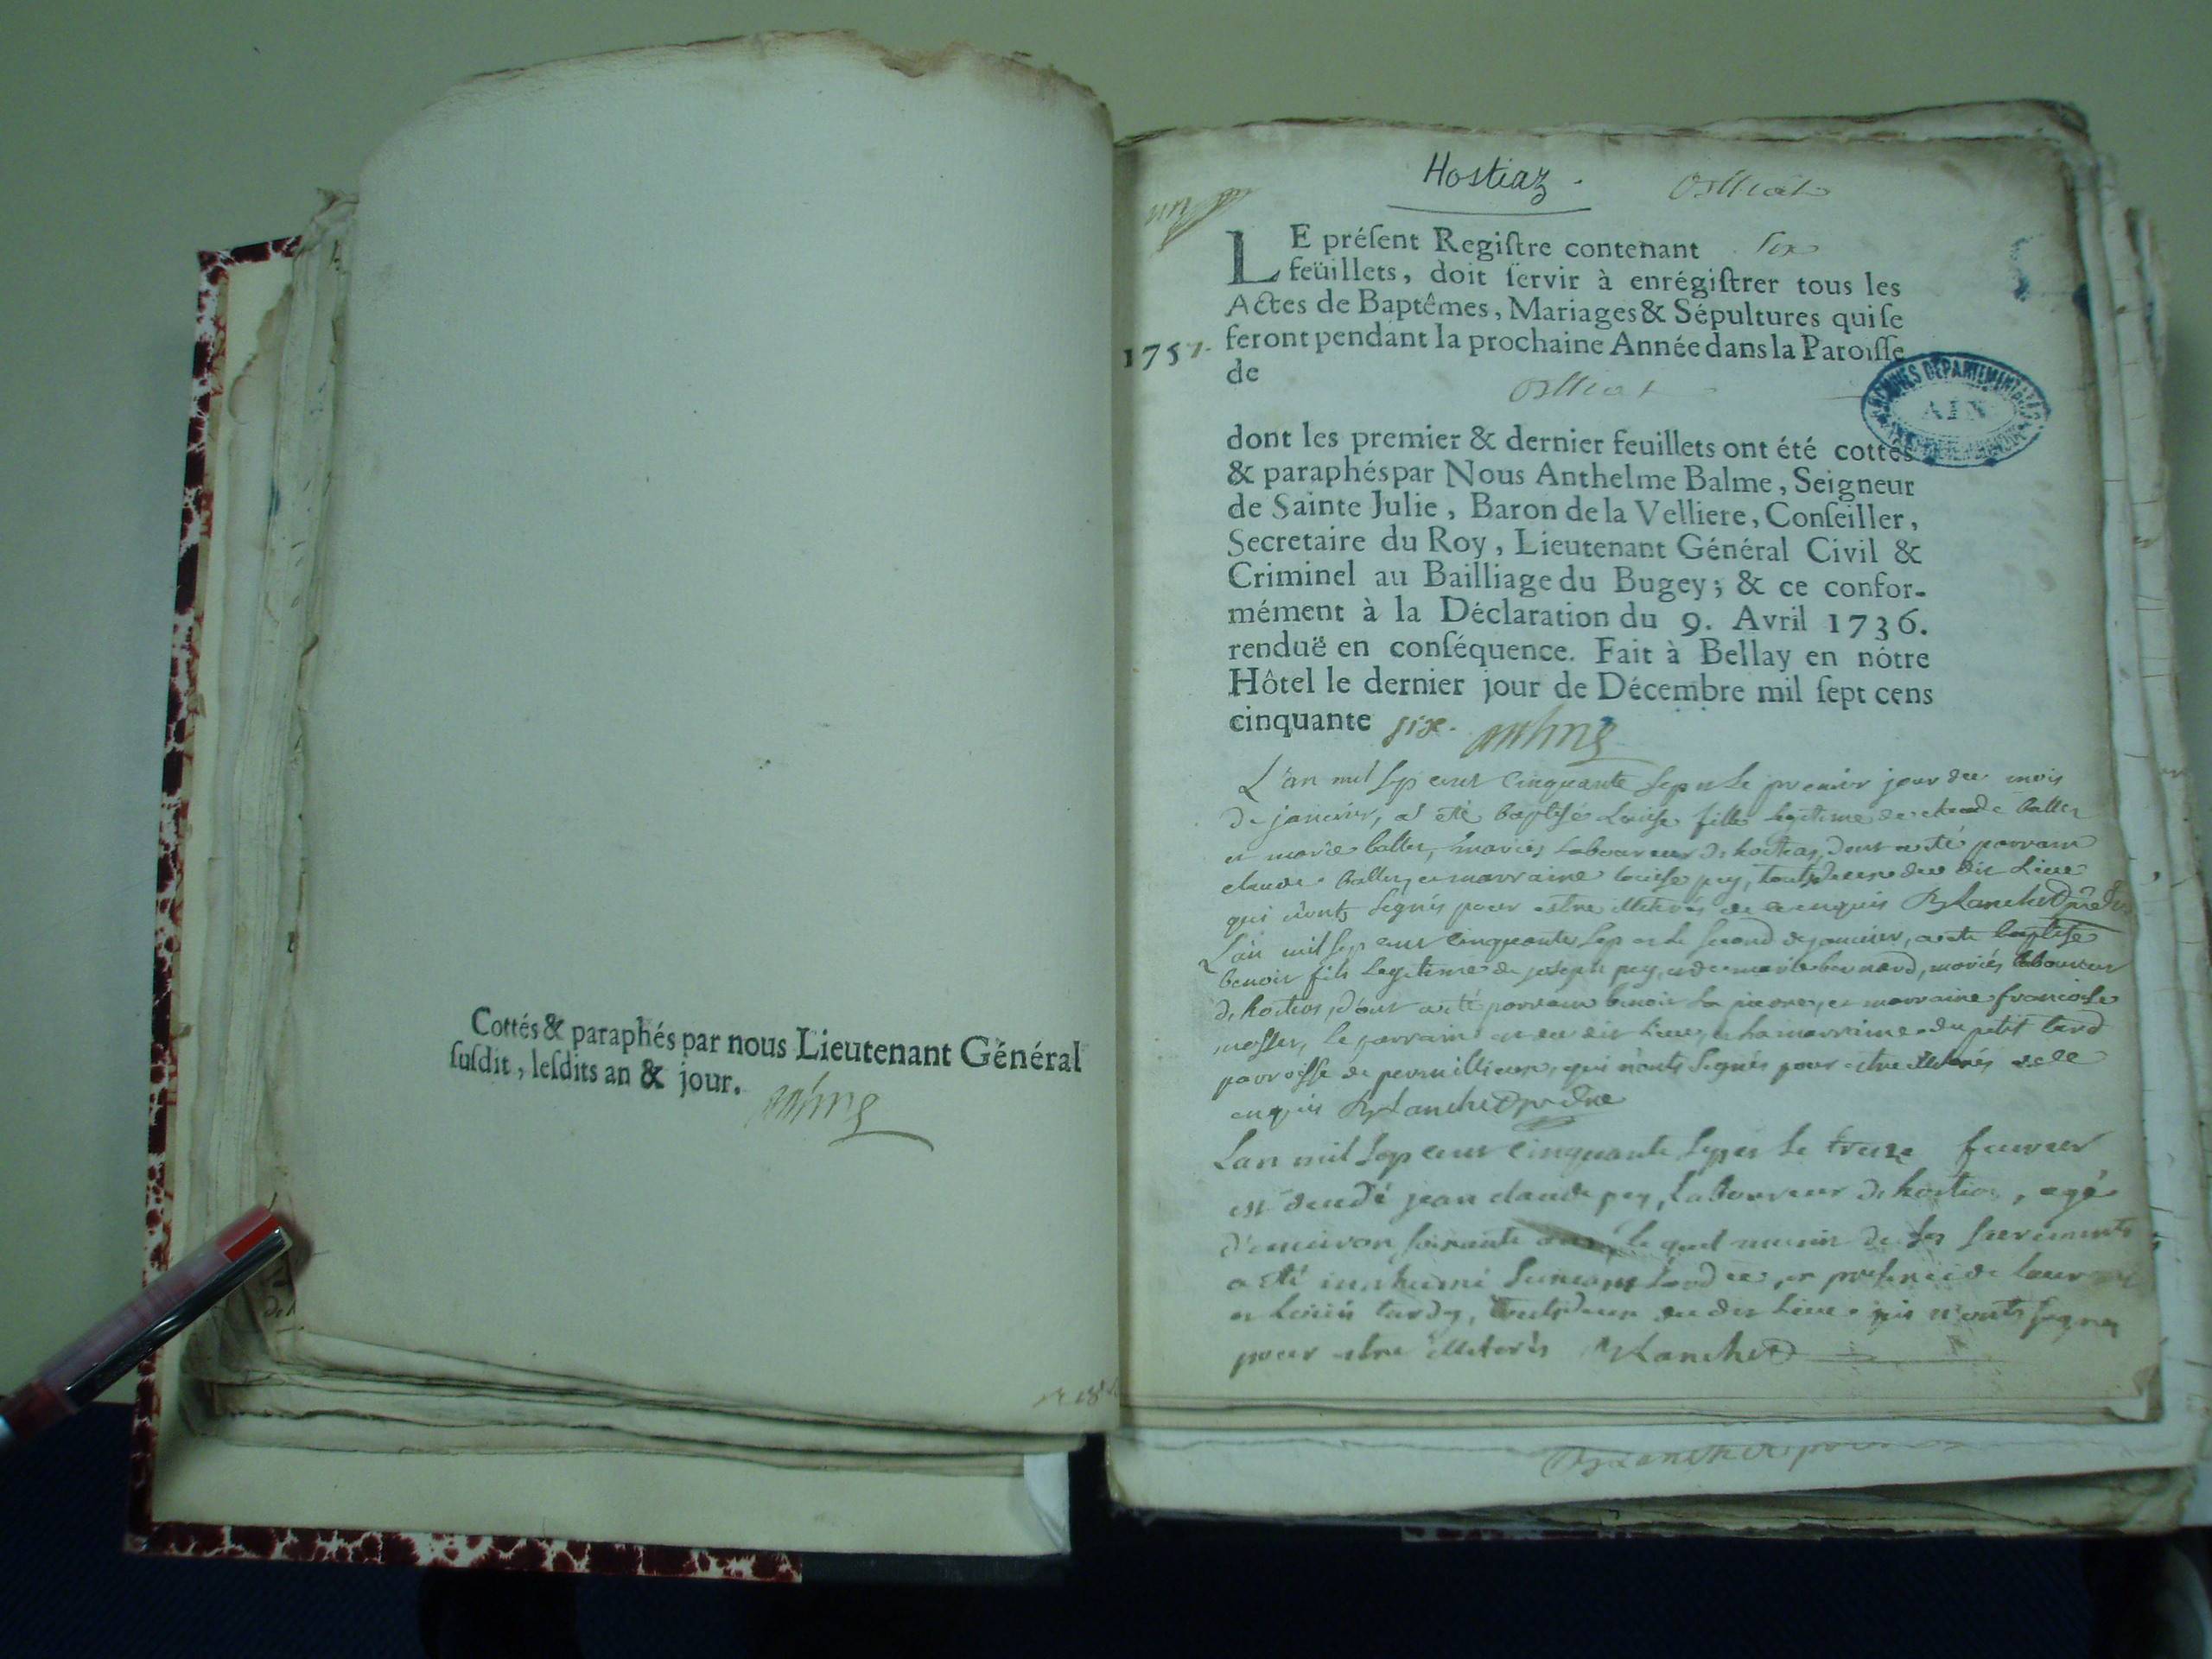 Cottés & paraphés par nous Lieutenant Général
ſuſdit, leſdits an & jour.
Hostiaz.
LE préſent Regiſtre contenant six
feüillets, doit ſervir à enrégiſtrer tous les
Actes de Baptêmes, Mariages & Sépultures qui ſe
1757. feront pendant la prochaine Année dans la Paroiſſe
de
dont les premier & dernier feuillets ont été cottés
& paraphés par Nous Anthelme Balme, Seigneur
de Sainte Julie, Baron de la Velliere, Conſeiller,
Secretaire du Roy, Lieutenant Général Civil &
Criminel au Bailliage du Bugey; & ce confor-
mément à la Déclaration du 9. Avril 1736.
renduë en conſéquence. Fait à Bellay en nôtre
Hôtel le dernier jour de Décembre mil ſept cens
cinquante six.
ARCHIVES DEPARTEMENTALES
AIN
L'an mil sep cent cinquante sep et le premier jour du mois
de janvier, a été baptisé Louise fille legitime de claude ballet
et marie ballet, mariés laboureur de hostias, dont a été parrain
claude ballet, et marraine louise pey, touts deux du dit lieu
qui n'ont signés pour estre illeterés de ce enquis Blanchet
L'an mil sep cent cinquante sep et le second de janvier, a esté baptisé
benoit fils legitime de joseph pey, et de marie bernard, mariés laboureur
de hostias, dont a été parrain benoit la pierre, et marraine francoise
le parrain du dit lieu, et la marraine du petit tard
parroisse de qui n'ont signés pour estre illeterés de ce
enquis Blanchet
Lan mil sep cent cinquante sep et le treize fevrier
est decedé jean claude pey, laboureur de hostias, agé
d'environ soixante ans, le quel munis de ses sacrements
a été innhumé en presence de
et Louis tardy, touts deux du dit lieu qui n'ont signés
pour estre illeterés Blanchet
Blanchet